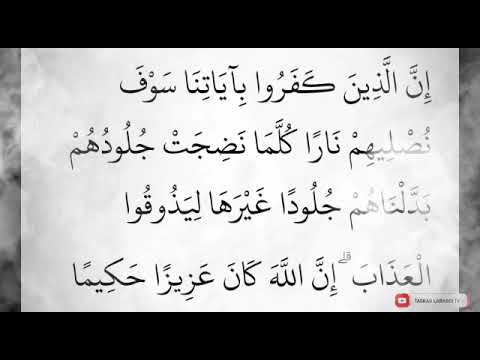 إِنَّ الَّذِينَ كَفَرُوا بِآيَاتِنَا سَوْفَ
نُصْلِيهِمْ نَارًا كُلَّمَا نَضِجَتْ جُلُودُهُمْ
بَدَّلْنَاهُمْ جُلُودًا غَيْرَهَا لِيَذُوقُوا
الْعَذَابَ ۗ إِنَّ اللَّهَ كَانَ عَزِيزًا حَكِيمًا